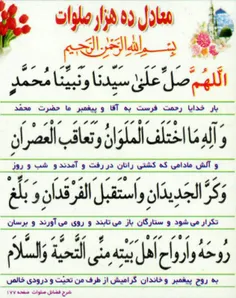 معادل ده هزار صلوات
بِسْمِ اللهِ الرَّحْمنِ الرَّحيمِ
اَللّهُمَّ صَلِّ عَلىٰ سَيِّدِنا وَنَبِيِّنا مُحَمَّدٍ
بار خدایا رحمت فرست به آقا و پیغمبر ما حضرت محمّد
وَ آلِهِ مَا اخْتَلَفَ الْمَلَوانُ وَتَعاقَبَ الْعَصْرانِ
و آلش مادامی که کشتی رانان در رفت و آمدند و شب و روز
وَكَرَّ الْجَديدانِ وَاسْتَقْبَلَ الْفَرْقَدانِ وَ بَلِّغْ
تکرار می شود و ستارگان باز می تابند و روی می آورند و برسان
رُوحَهُ وَاَرْواحَ اَهْلِ بَيْتِهِ مِنِّى التَّحِيَّةَ وَالسَّلامَ
به روح پیغمبر و خاندان گرامیش از طرف من تحیّت و درودی خالص
شرح فضائل صلوات صفحه ۱۷۷